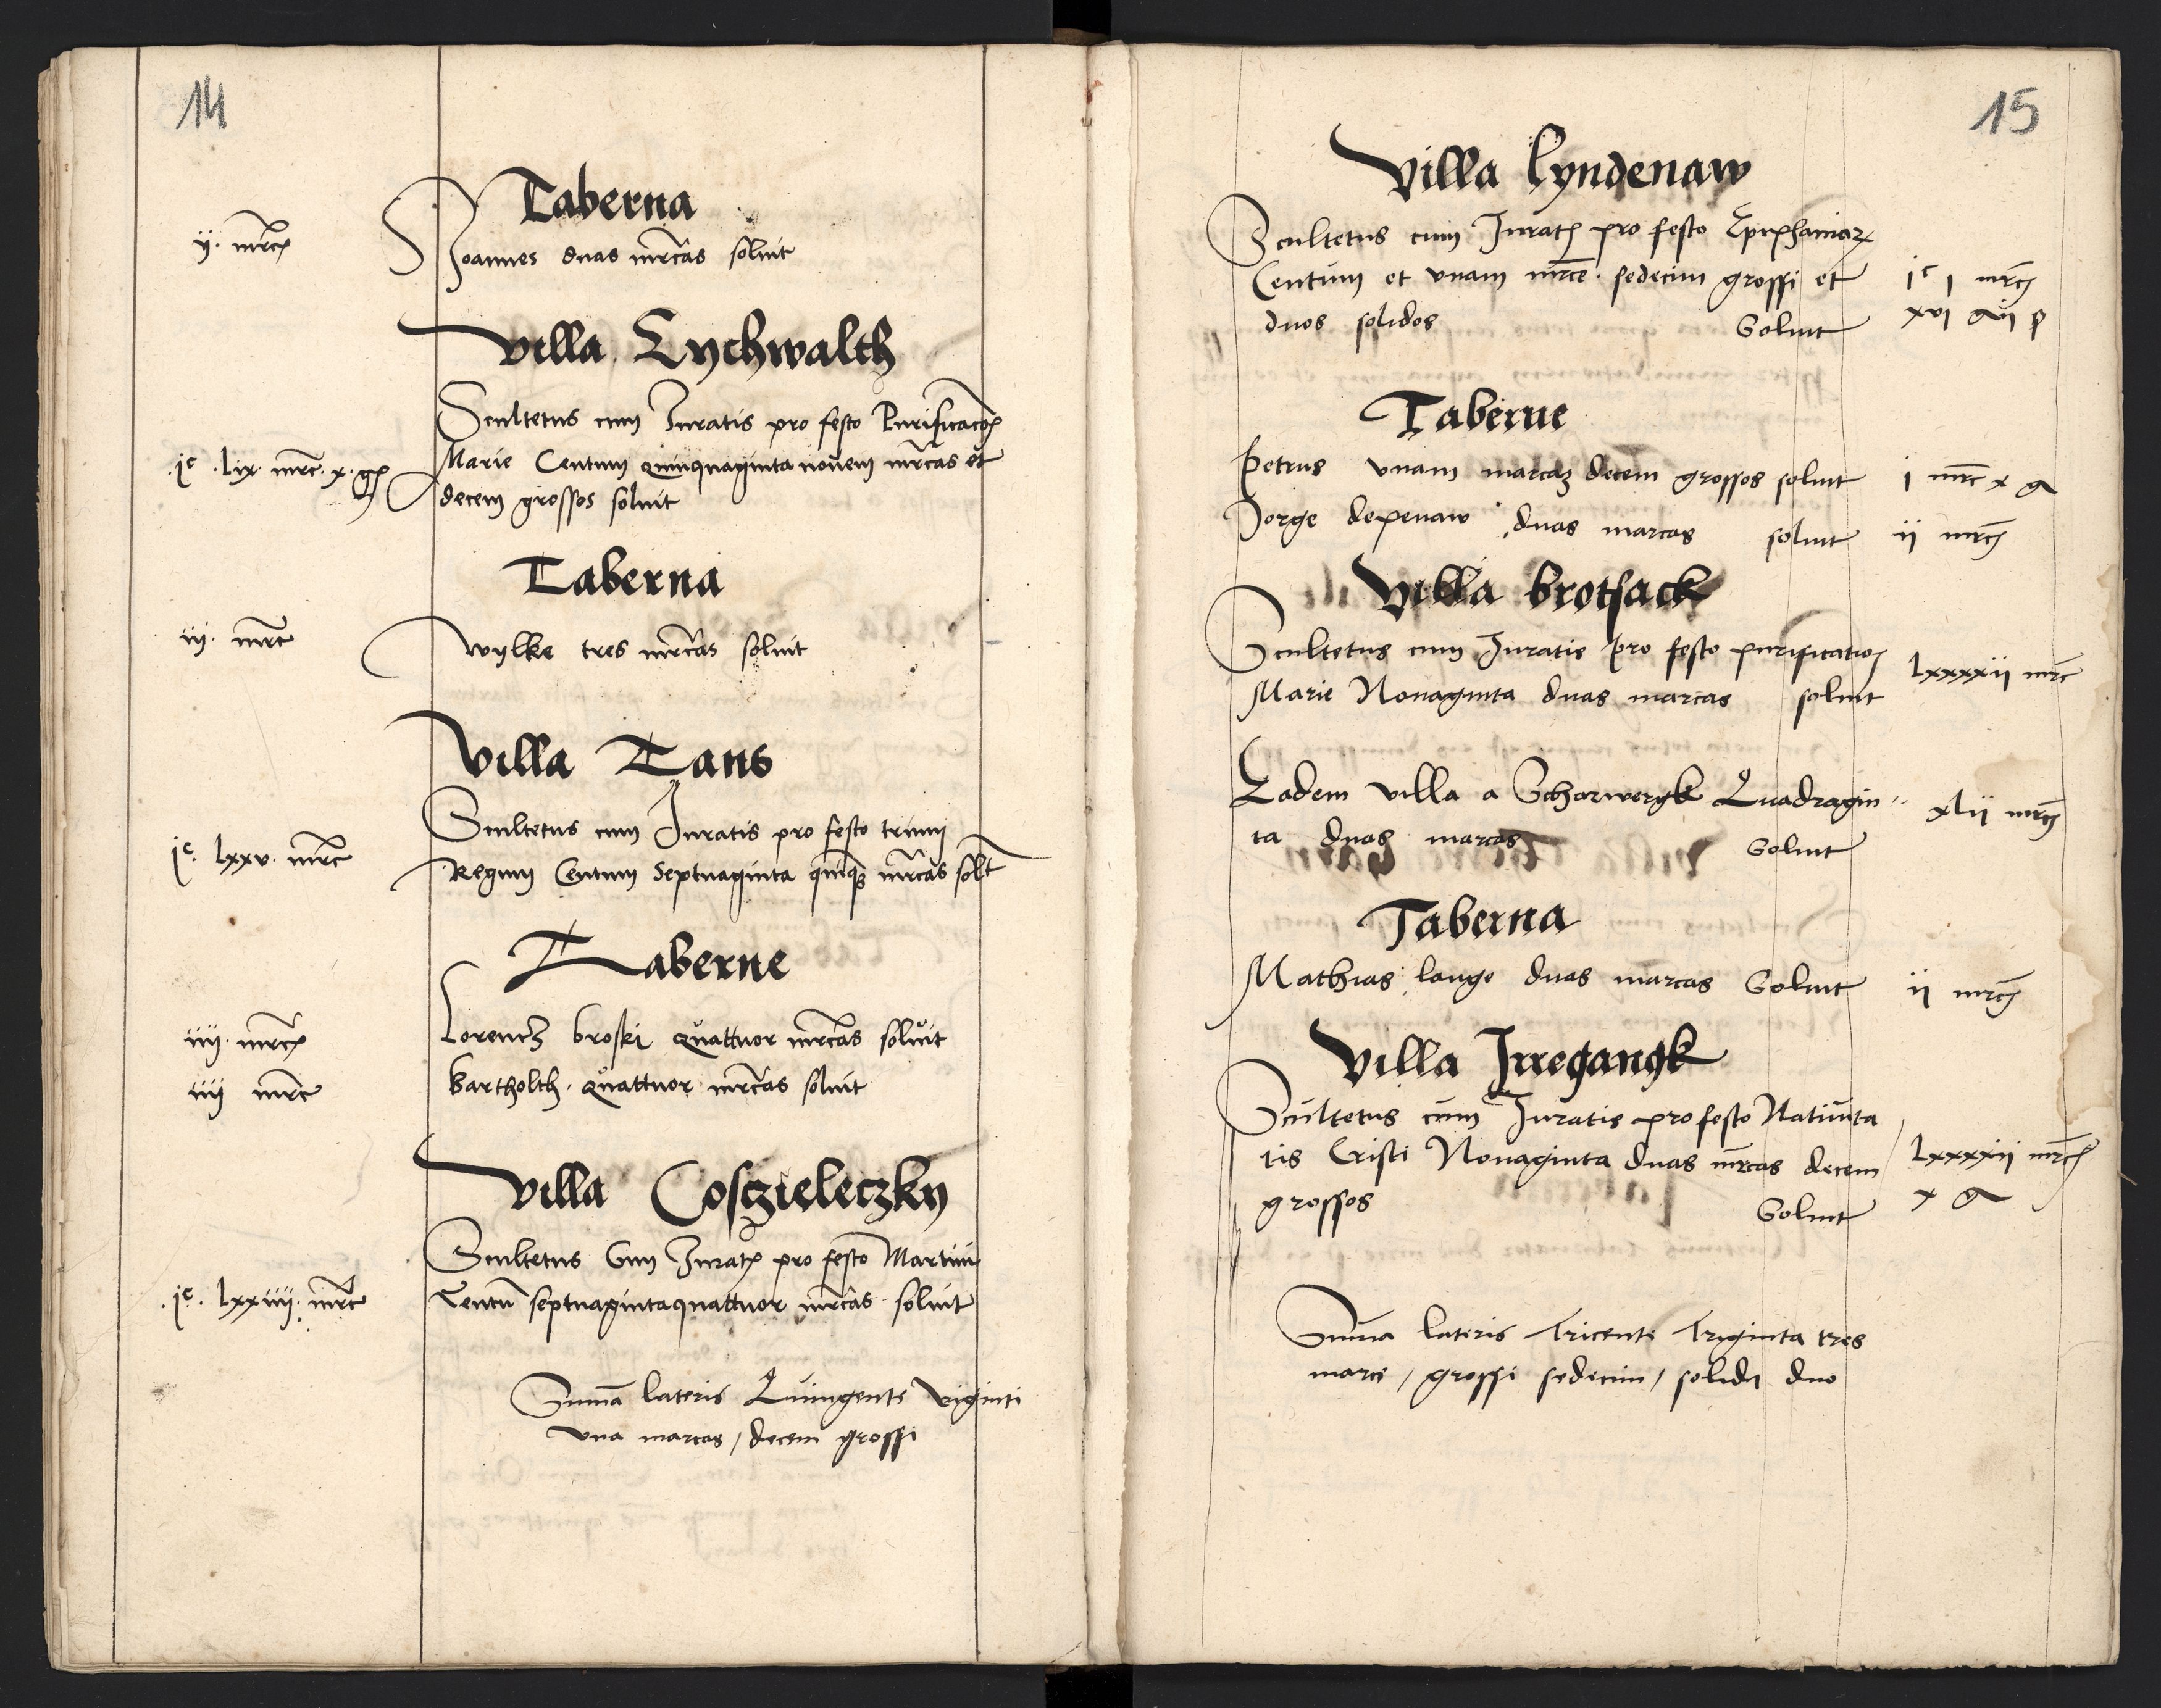 14
Taberna
ij. mrc̄
Joannes duas mrc̄as soluit
Villa Eychwalth
Scultetus cum Juratis pro festo Purificacōs
.jc. Lix. mrc̄. x. gr̄
Marie Centum quinquaginta nouem mrc̄as et
decem grossos soluit
Taberna
iij. mrc̄
Wylke tres mrc̄as soluit
Villa Tans
Scultetus cum Juratis pro festo trium
jc. Lxxv. mrc̄
Regum Centum Septuaginta quīqȝ mrc̄as solt
Taberne
iiij. mrc̄
Lorencz broski quattuor mrc̄as soluit
iiij mrc̄
Bartholth. quattuor mrc̄as soluit
Villa Cosczieleczky
Scultetus Cum Jurat̄ pro festo Martini
.jc. Lxxiiij. mrc̄
Centū septuagintaquattuor mrc̄as soluit
Sum̄a lateris Quingente viginti
vna marcas / decem grossi
15
Villa Lyndenaw
Scultetus cum Jurat̄ pro festo Epiphaniaꝝ
Centum et vnam mrc̄e. sedecim grossi et
jc j mrc̄
duos solidos Soluit
xvj g ij ꝑ
Taberne
Petrus vnam marcaȝ decem grossos soluit
j mrc̄ x g
Jorge depenaw duas marcas soluit
ij mrc̄
Villa brotsack
Scultetus cum Juratis pro festo purificatiōs
Lxxxxij mrc̄
Marie Nonaginta duas marcas soluit
Eadem villa a Scharwergk Quadragin
xlij mrc̄
ta duas marcas Soluit
Taberna
Mathias lange duas marcas Soluit
ij mrc̄
Villa Jrregangk
Scultetus cum Juratis pro festo Natiuita
tis Cristi Nonaginta duas mr̄cas decem
Lxxxxij mrc̄
grossos Soluit
x g
Summa lateris Tricente Triginta tres
marce / grossi sedecim / solidi duo